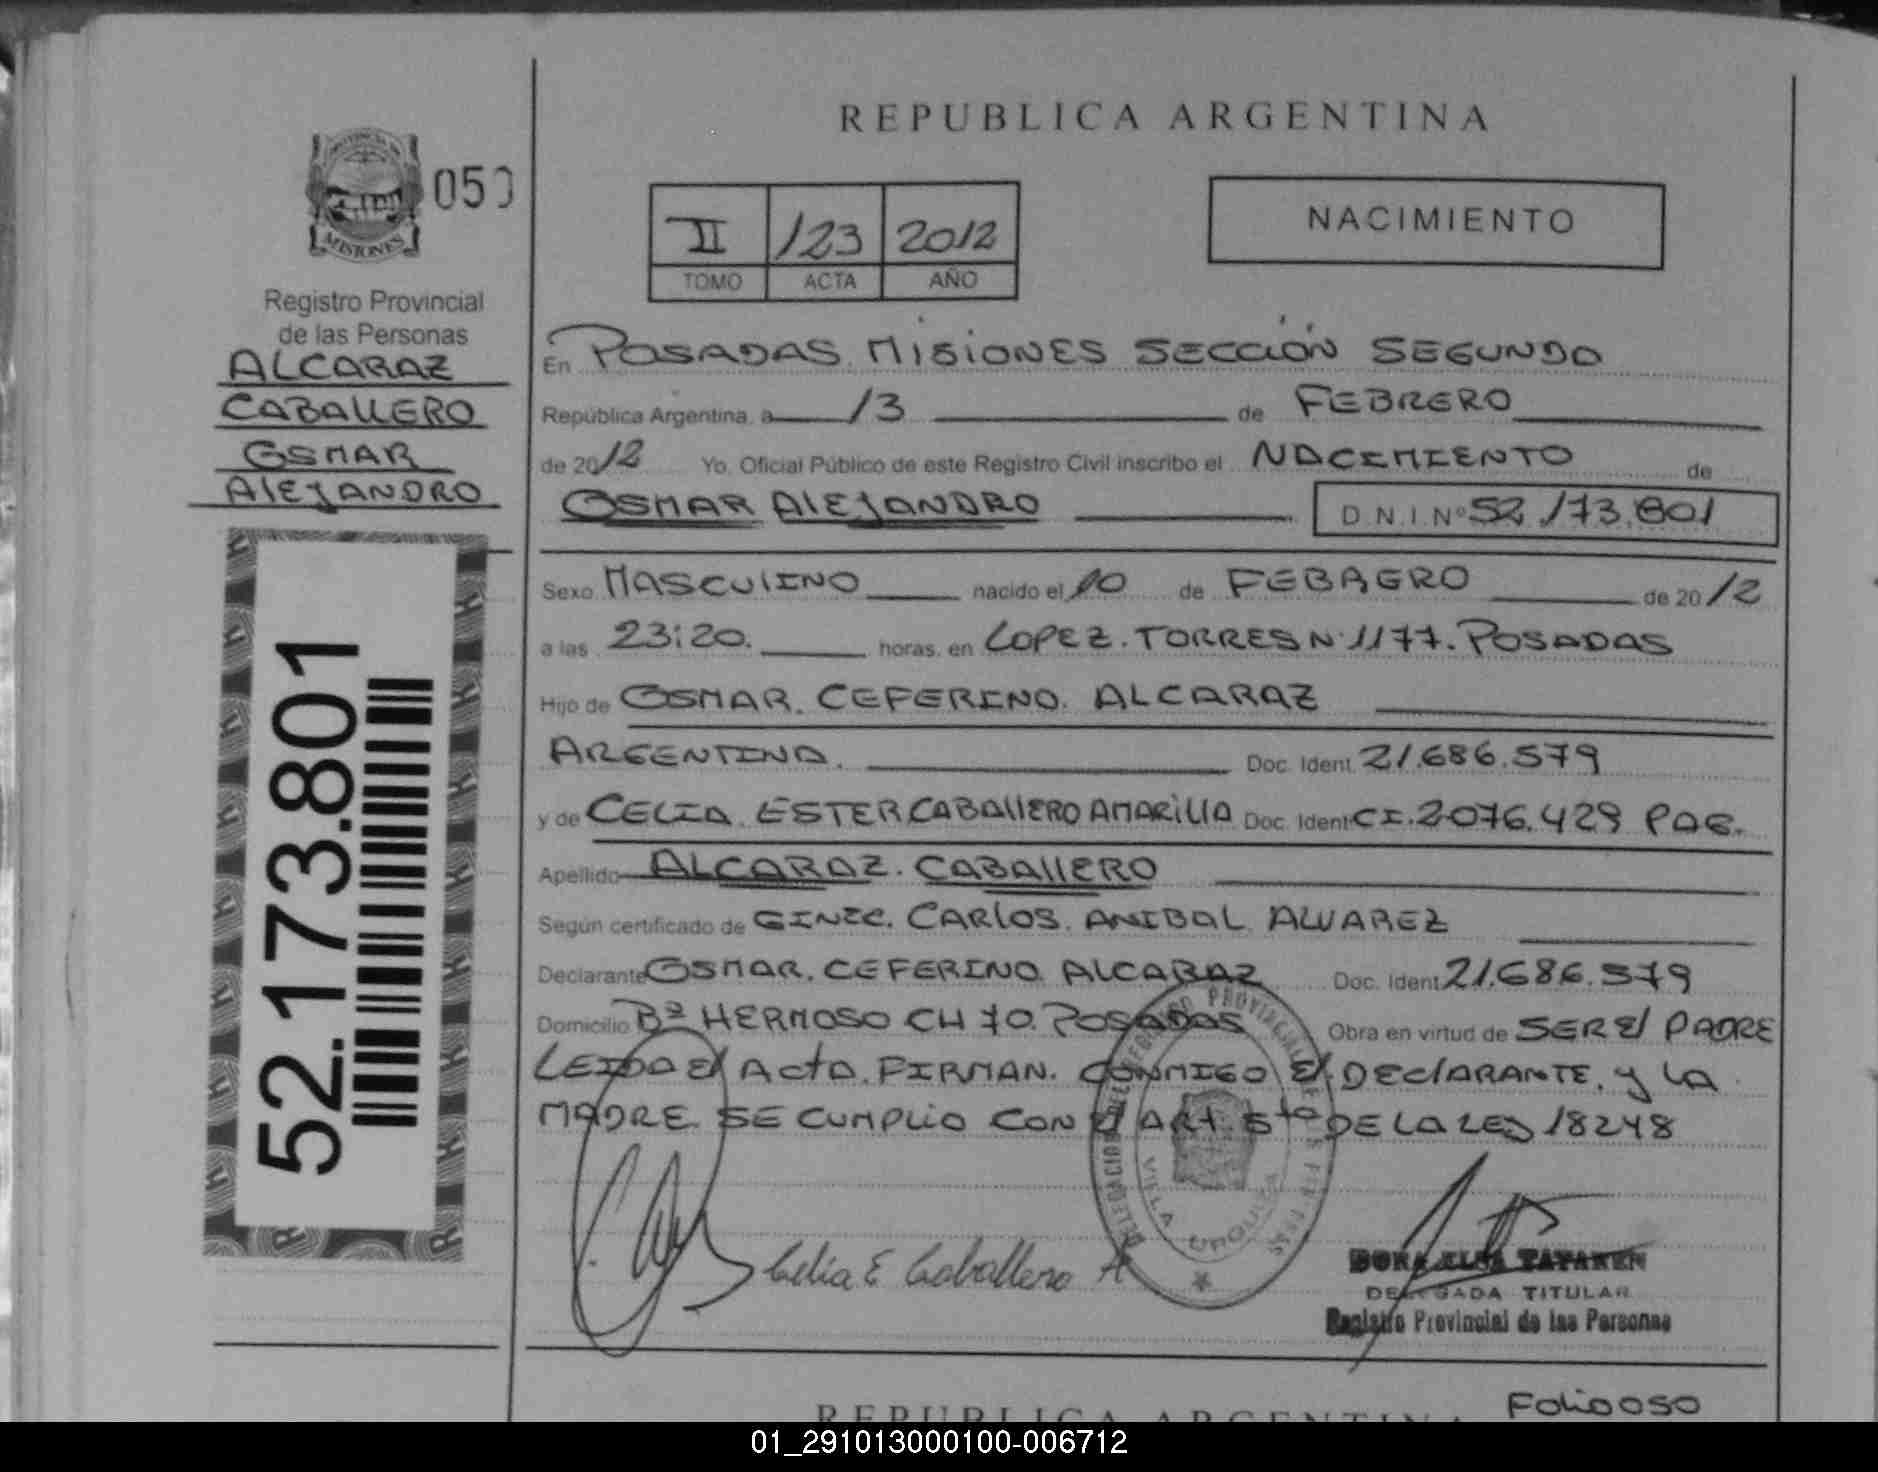 REPUBLICA ARGENTINA
PROVINCIA DE
MISIONES
050
Registro Provincial
de las Personas
ALCARAZ
CABALLERO
OSMAR
ALEJANDRO
52.173.801
II 123 2012
TOMO ACTA AÑO
NACIMIENTO
En POSADAS. MISIONES SECCIÓN SEGUNDO
República Argentina, a 13 de FEBRERO
de 2012 Yo, Oficial Público de este Registro Civil inscribo el NACIMIENTO de
OSMAR ALEJANDRO D.N.I.Nº 52.173.801
Sexo MASCULINO nacido el 10 de FEBRERO de 2012
a las 23:20. horas, en LOPEZ. TORRES N. 1177. POSADAS
Hijo de OSMAR. CEFERINO. ALCARAZ
ARGENTINA. Doc. Ident. 21.686.579
y de CELIA. ESTER CABALLERO AMARILLA Doc. Ident CI. 2.076.429 PAG.
Apellido ALCARAZ. CABALLERO
Según certificado de GINEC. CARLOS. ANIBAL ALVAREZ
Declarante OSMAR. CEFERINO. ALCARAZ Doc. Ident 21.686.579
Domicilio Bº HERMOSO CH 70. POSADAS Obra en virtud de SER El PADRE
LEIDA El ActA. FIRMAN. CONMIGO El DEClARANTE. y LA
MADRE SE CUMPLIO CON El ART. 5to DE LA LEY 18248
Celia E Caballero A
VILLA URQUIZA
DELEGADA TITULAR
Registro Provincial de las Personas
REPUBLICA ARGENTINA
Folio 050
01_291013000100-006712